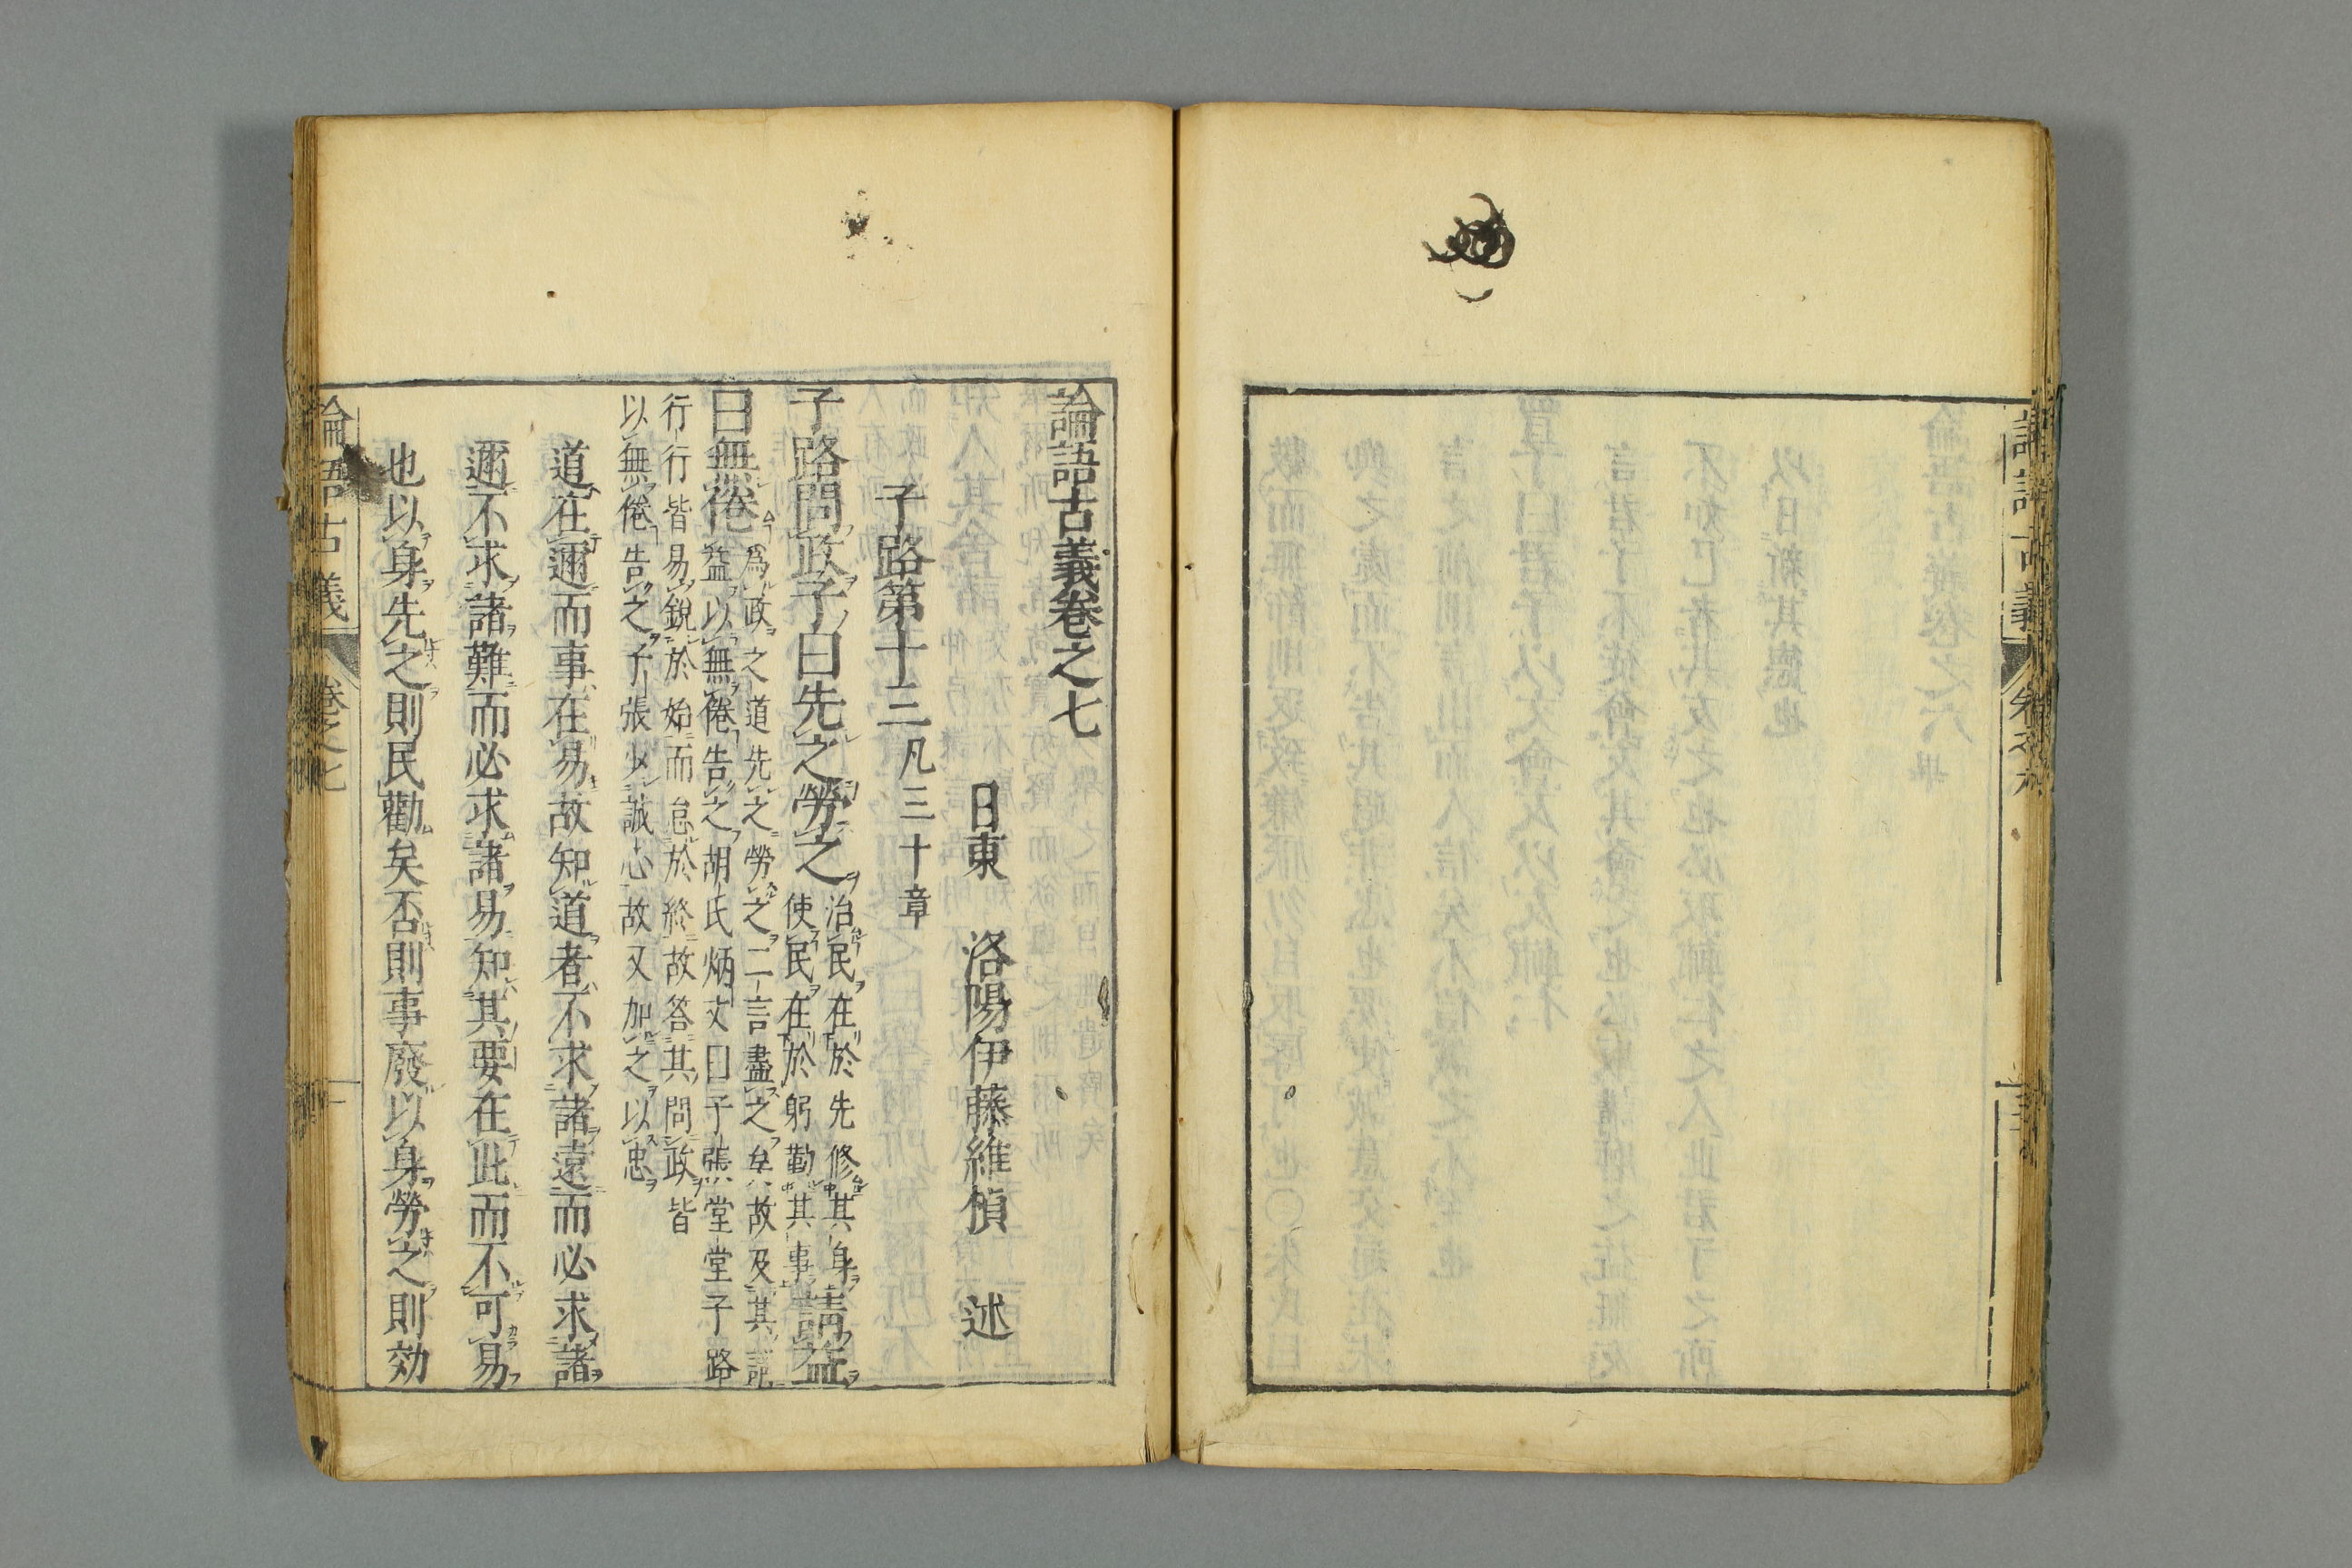 論語古義卷之七
日東 洛陽伊藤維楨 述
子路第十三 凡三十章
子路問政子曰先之勞之 治民在於先修其身
使民在於躬勤其事 請益
曰無倦 爲政之道先之勞之二言盡之矣故及其請
益以無倦告之胡氏炳文曰子張堂堂子路
行行皆易銳於始而怠於終故答其問政皆
以無倦告之子張少誠心故又加之以忠
道在邇而事在易故知道者不求諸遠而必求諸
邇不求諸難而必求諸易知其要在此而不可易
也以身先之則民勸矣否則事廢以身勞之則効
論語古義 卷之七 一